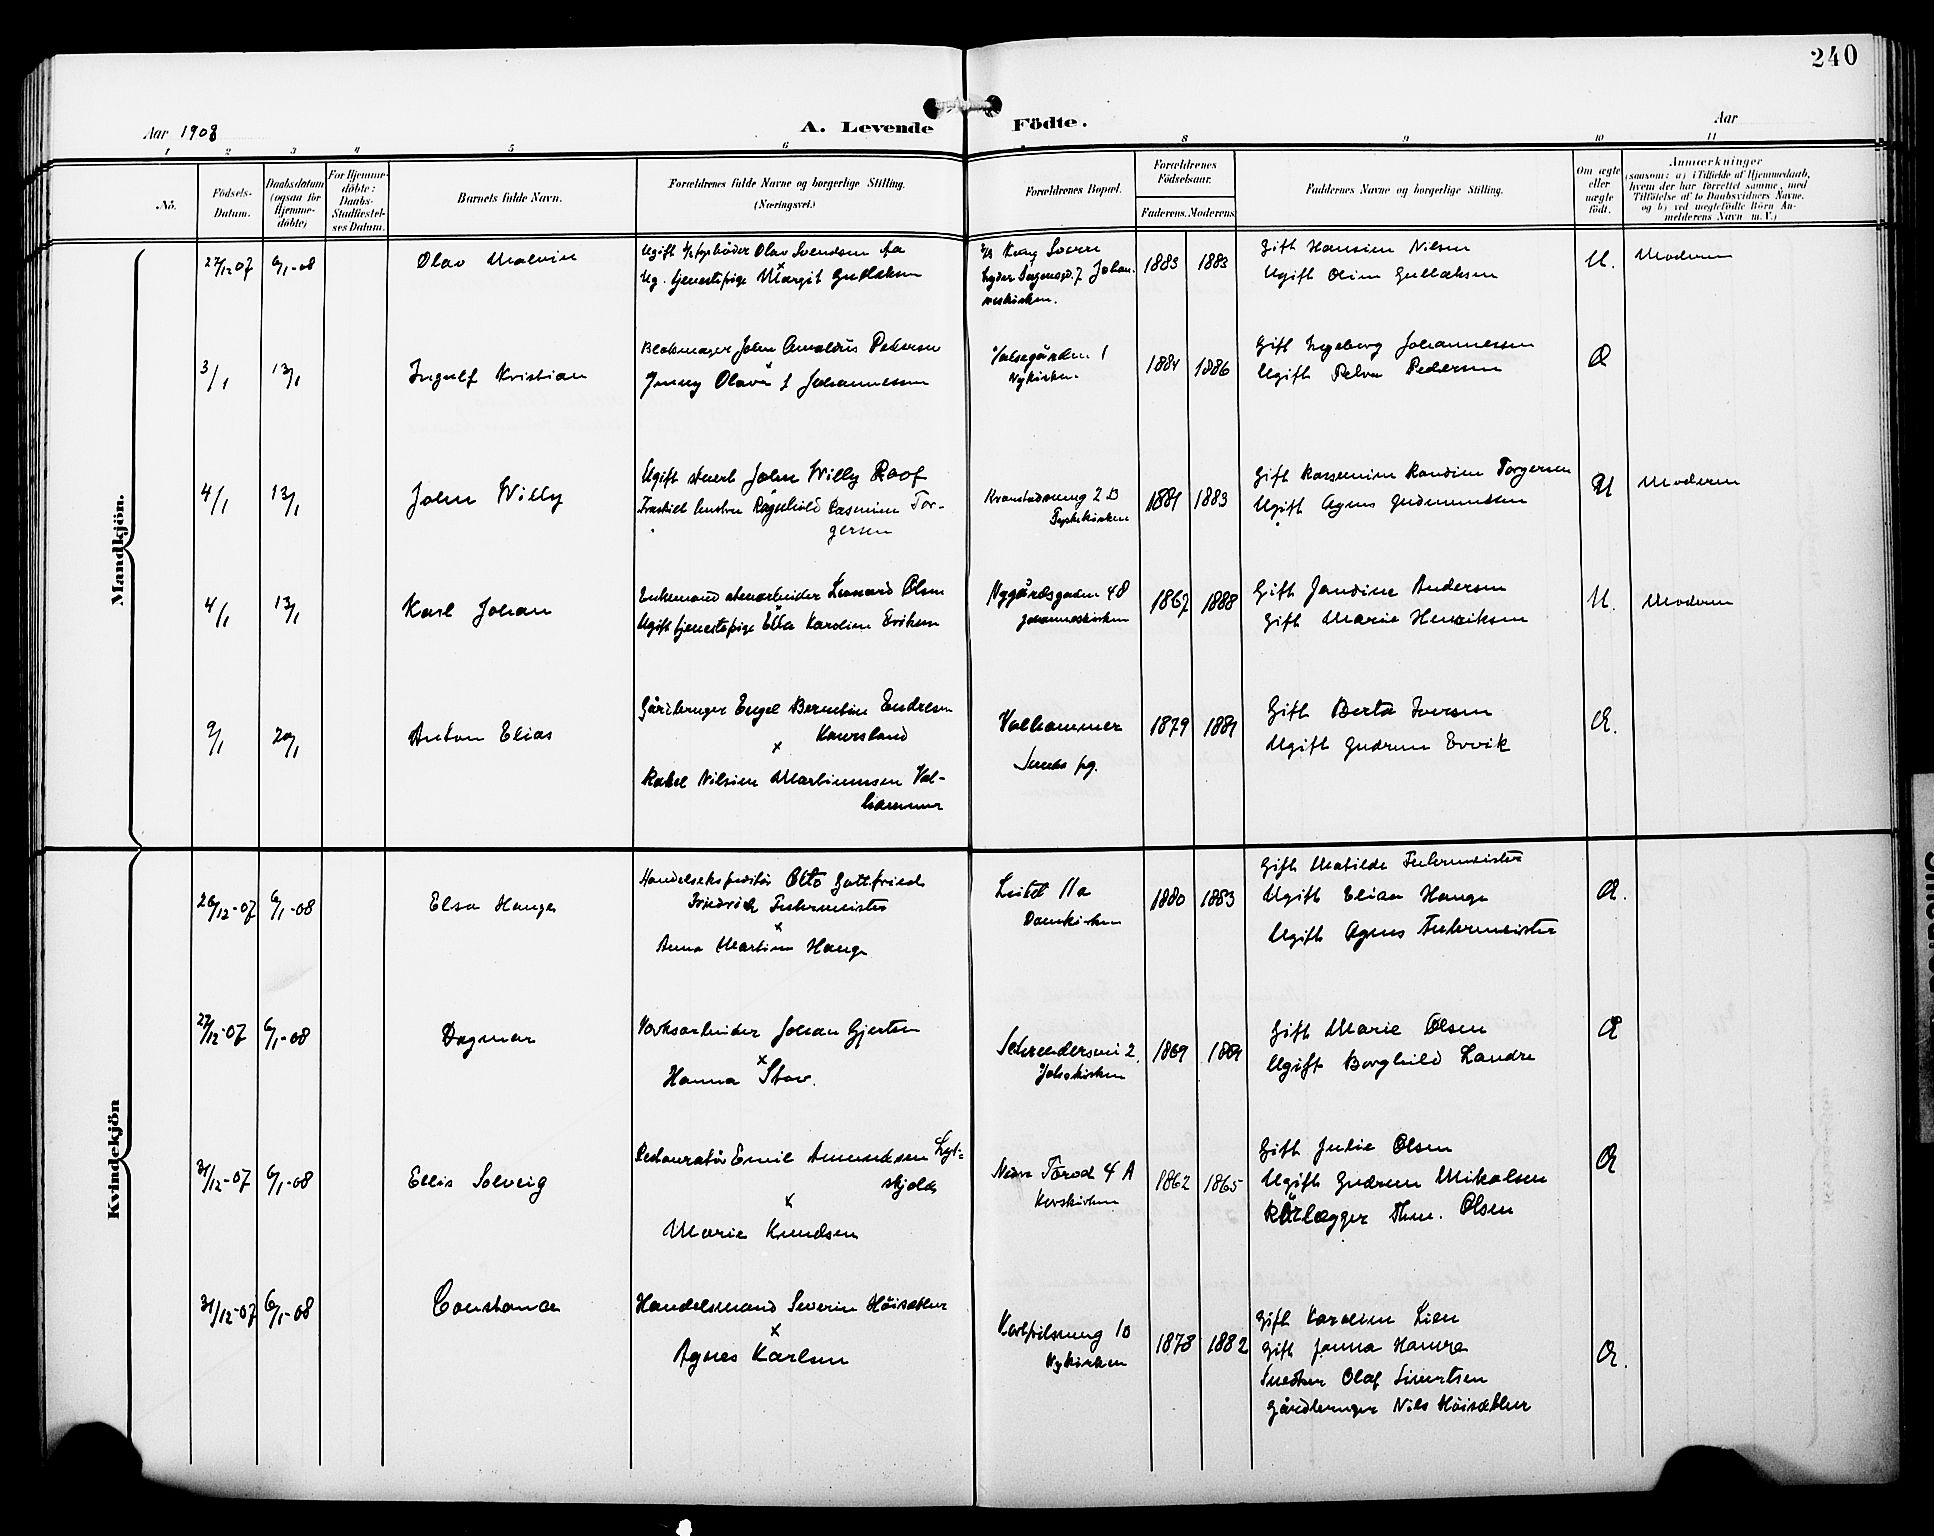 240
Aar 1908
A. Levende Födte.
Aar
1 2 3 4 5 6 8 9 10 11
No.
Födsels-Datum.
Daabsdatum (ogsaa for Hjemmedöbte)
For Hjemmedöbte: Daabs-Stadfæstelses Datum.
Barnets fulde Navn.
Forældrenes fulde Navne og borgerlige Stilling.
(Næringsvei.)
Forældrenes Bopæl.
Forældrenes Födselsaar.
Faderens. Moderens.
Faddernes Navne og borgerlige Stilling.
Om ægte eller uægte födt.
Anmærkninger
(saasom: a) i Tilfælde af Hjemmedaab,
hvem der har forrettet samme, med
Tilföielse af to Daabsvidners Navne,
og b) ved uægtefödte Börn An-
melderens Navn m. V.)
Mandkjön.
27/12 07 6/1-08 Olav Malvin
Ugift Olav Svendsen Aa
x
Ug. tjenestepige Margit Gullaksen
Johan-
neskirken.
1883 1883
Gift Hansine Nilsen
Ugift Oline Gullaksen
U. Moderen
3/1 13/1 Ingulf Kristian
Blokmager John Arnoldus Pedersen
x
Jenny Olava f Johannessen
1
Nykirken.
1884 1886
Gift Ingeborg Johannessen
Ugift Petra Pedersen
Æ
4/1 13/1 John Willy
Ugift stuert John Willy Roof
Fraskilt hustru Ragnhild Rasmine Tor-
gersen
2 B
Tyskekirken
1881 1883
Gift Torgersen
Ugift Agnes Gudmundsen
U Moderen
4/1 13/1 Karl Johan
Enkemand stenarbeider Leonard Olsen
Ugift tjenestepige Ella Karoline Eriksen
Nygårdsgaden 48
Johanneskirken
1867 1888
Gift Jandine Andersen
Gift Marie Henriksen
U. Moderen
9/1 20/1 Anton Elias
Gårdbruger Engel Berntin Endresen
Kaursland
x
Rakel Nilsine Martinussen Val-
hammer
Valhammer
Sunds pg.
1879 1881
Gift Berta Iversen
Ugift Gudrun Ervik
Æ.
Kvindekjön
26/12-07 6/1-08 Elsa Hauge
Handelsekspeditør Otto Gottfried
Friedrich Futtermeister
x
Anna Martine Hauge
11a
Domkirken
1880 1883
Gift Matilde Futtermeister
Ugift Elisa Hauge
Ugift Agnes Futtermeister
Æ.
27/12-07 6/1-08 Dagmar
Verksarbeider Johan Gjertsen
x
Hanna Stav.
2.
Johskirken
1869 1869
Gift Marie Olsen
Ugift Borghild Landre
Æ
31/12-07 6/1-08 Ellis Solveig
Restauratør Emil Amundsen Lyt-
skjold
x
Marie Knudsen
Nedre 4 A
Korskirken
1862 1865
Gift Julie Olsen
Ugift Gudrun Mikalsen
Rörlægger Thm. Olsen
Æ
31/12-07 6/1-08 Constance
Handelsmand Severin Höisæther
x
Agnes Karlsen
10
Nykirken
1878 1882
Gift Karoline Lien
Gift Janna Hamre
Snedker Olaf Sivertsen
Gårdbruger Nils Höisæther
Æ.